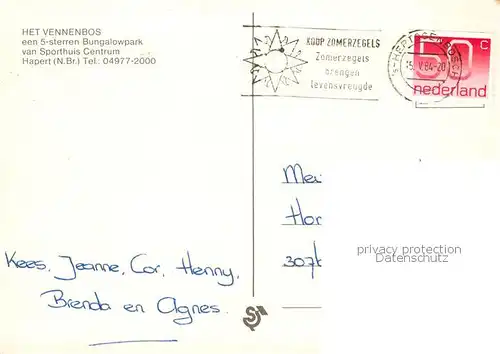 HET VENNENBOS
een 5-sterren Bungalowpark
van Sporthuis Centrum
Hapert (N.Br.) Tel.: 04977-2000
KOOP ZOMERZEGELS
Zomerzegels
brengen
levensvreugde
's-HERTOGENBOSCH
15.V.84-20
50 c
nederland
Hor
307
privacy protection
Datenschutz
Kees, Jeanne, Cor, Henny,
Brenda en Agnes.